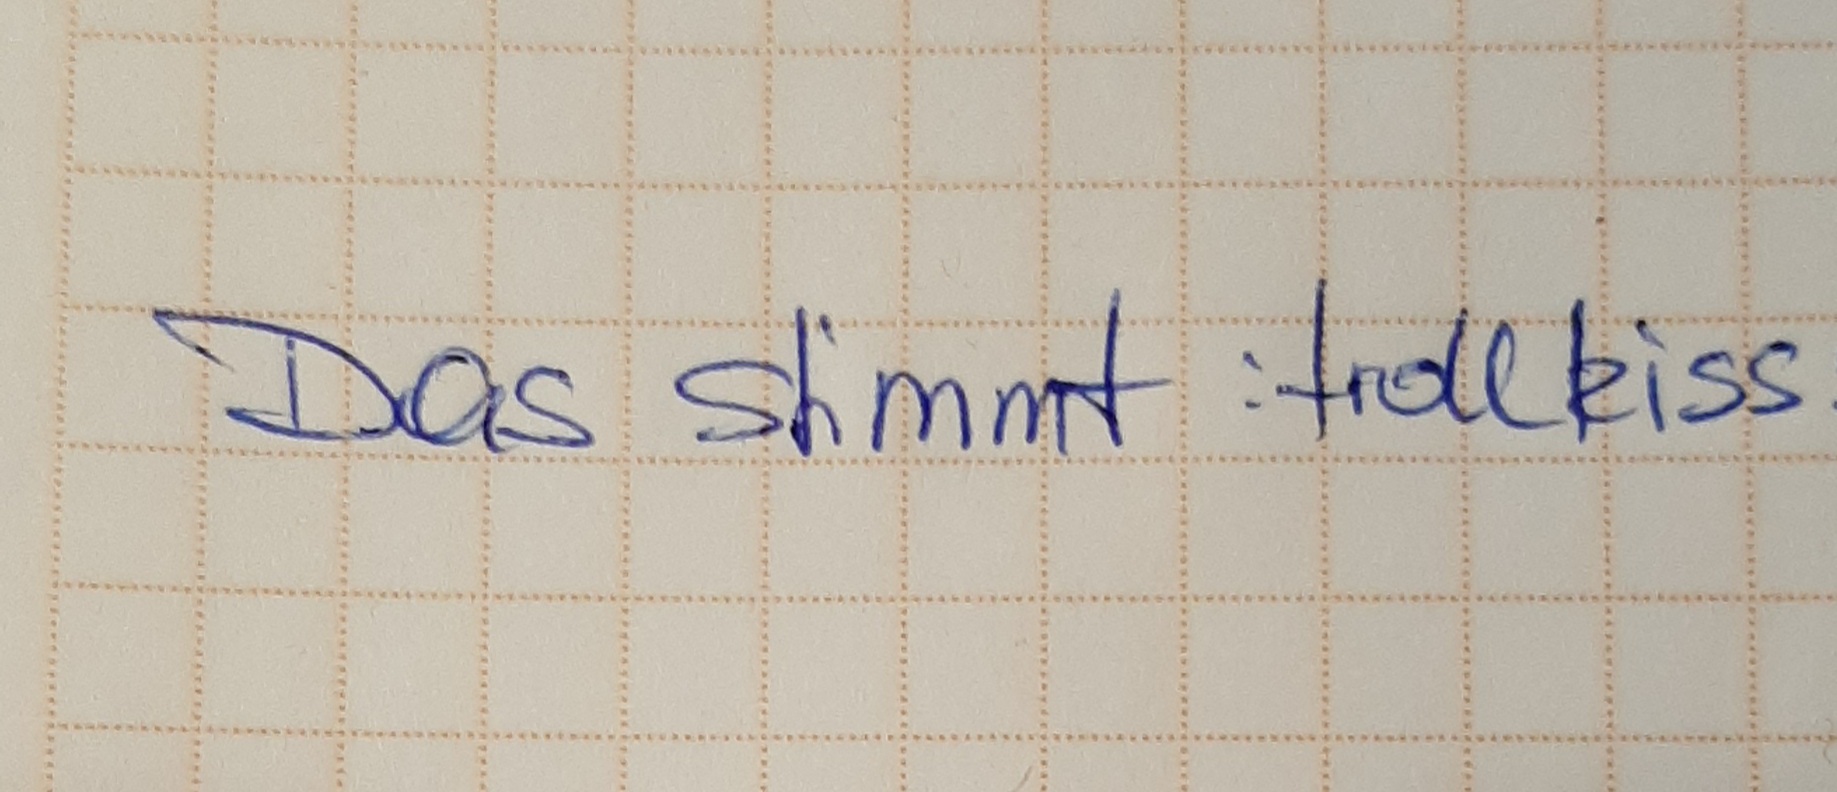 Das stimmt :trollkiss: